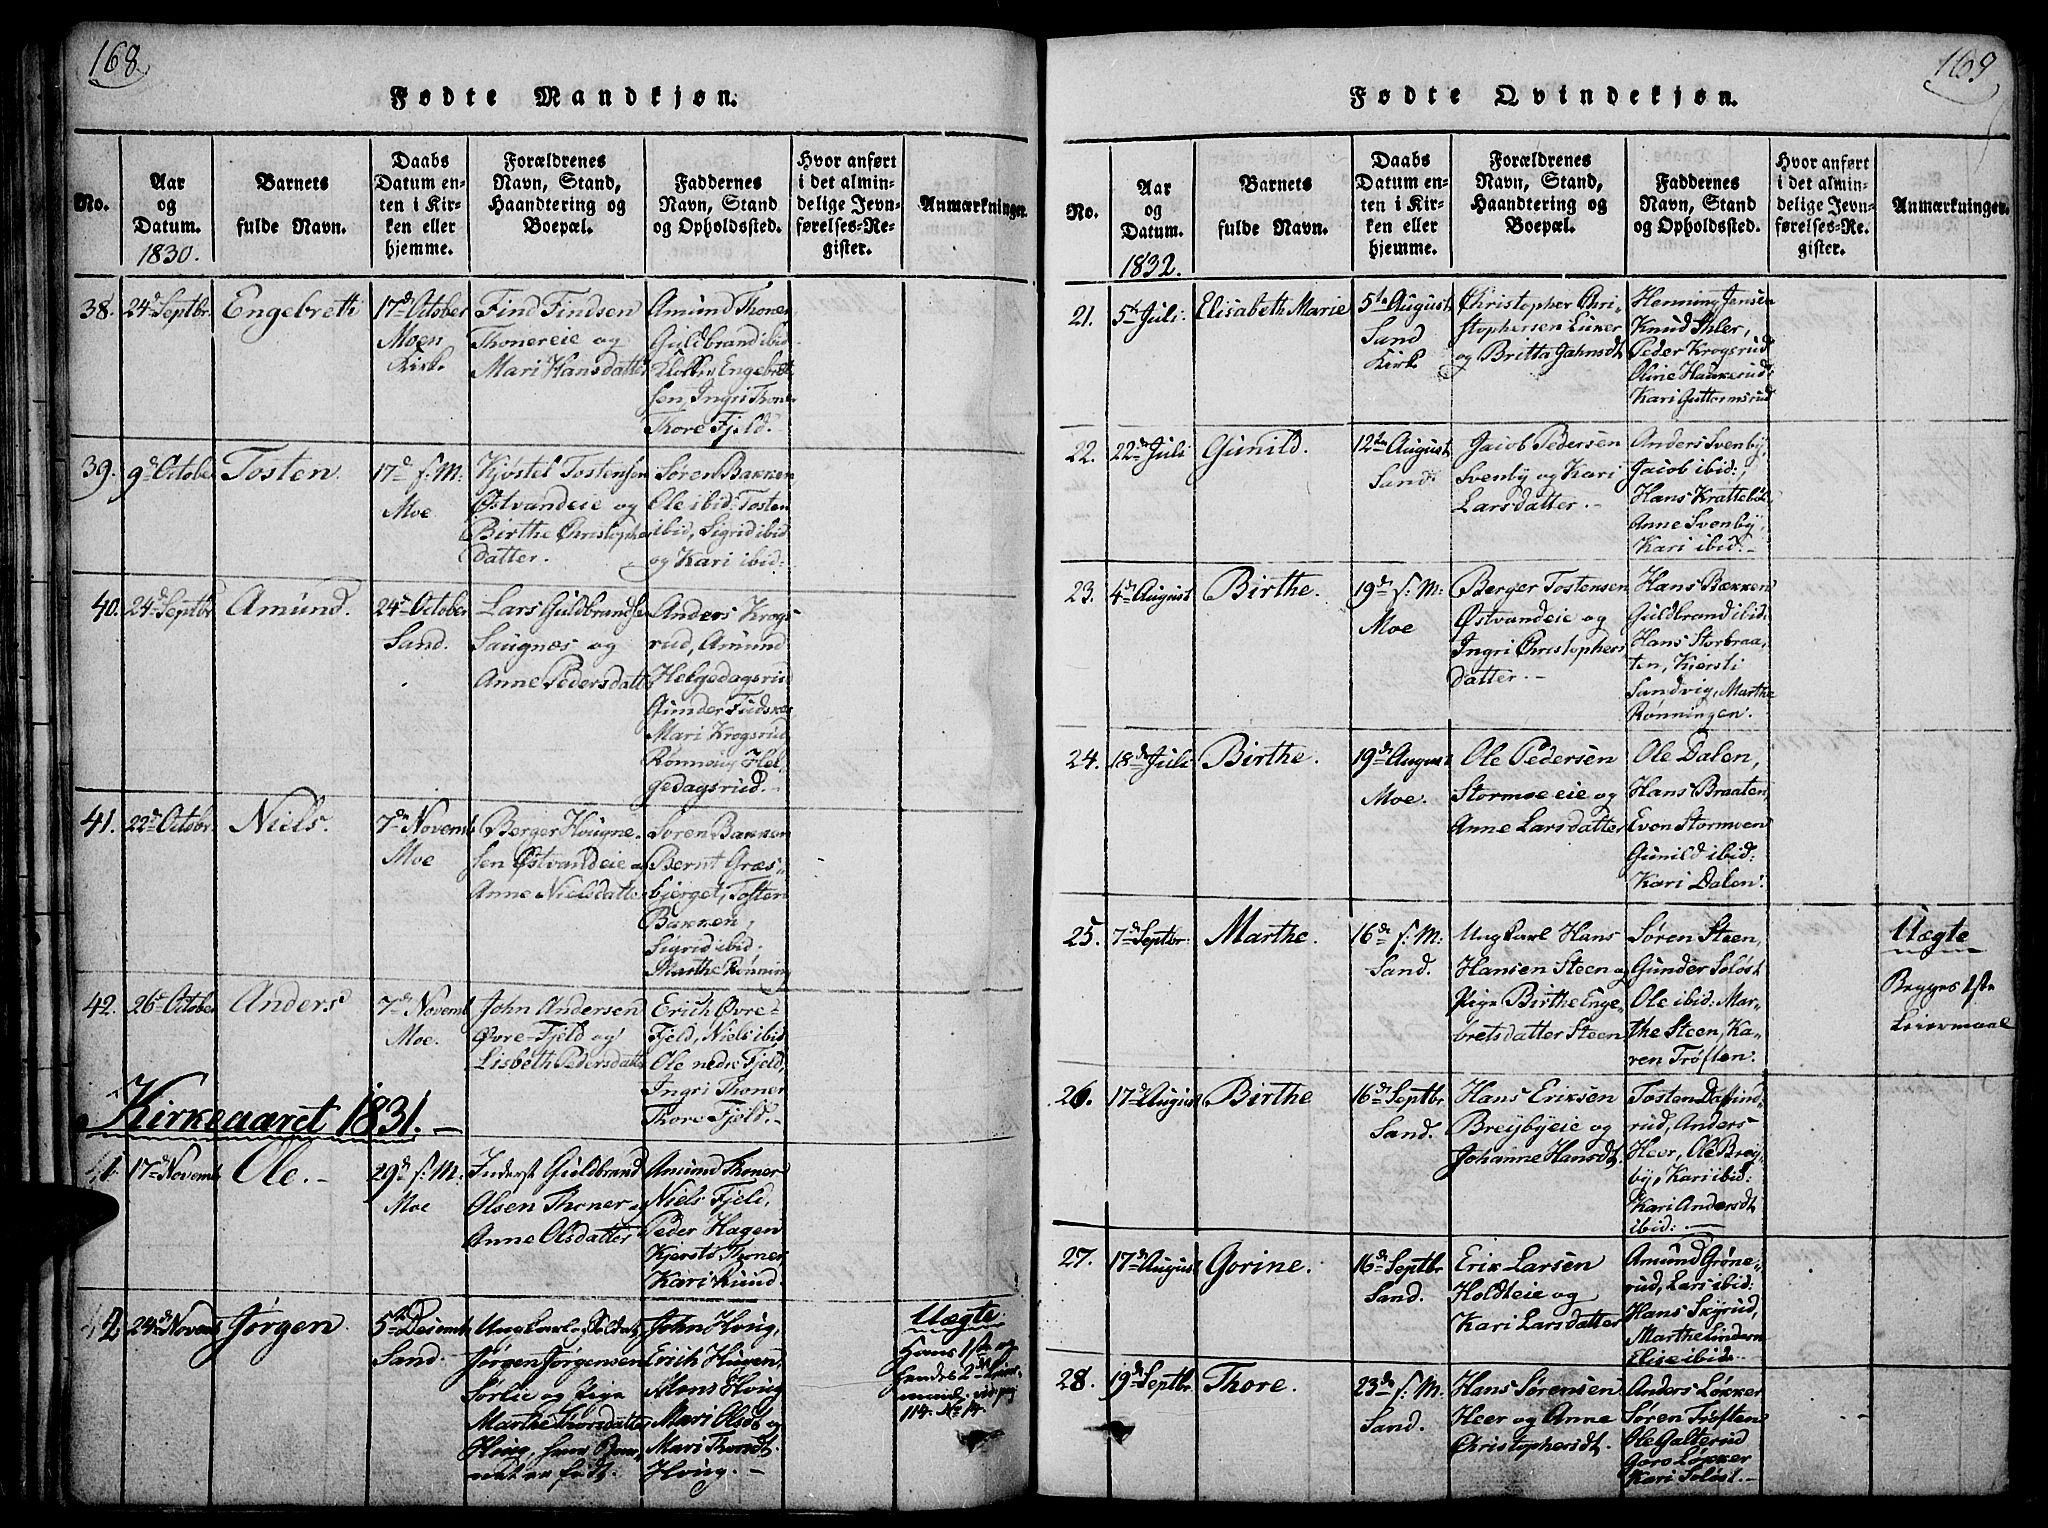 168
Fødte Mandkjøn.
No.
Aar
og
Datum.
1830.
Barnets
fulde Navn.
Daabs
Datum en-
ten i Kir-
ken eller
hjemme.
Forældrenes
Navn, Stand,
Haandtering og
Boepæl.
Faddernes
Navn, Stand
og Opholdssted.
Hvor anført
i det almin-
delige Jevn-
førelses-Re-
gister.
Anmærkninger.
38.
24d Septbr.
Engebreth
17d October
Moen
Kirk.
Find Findsen
Thonereie og
Mari Hansdatter
Amund Thoner
Guldbrand ibid.
Engebret-
sen, Ingri Thoner
Thore Fjeld.
39.
9d October
Tosten.
17d s: M:
Moe.
Kjøstel Tostensen
Østvandeie og
Birthe Christophers
datter.
Søren Bakken
Ole ibid: Tosten
ibid, Sigrid ibid
og Kari ibid:
40.
24d Septbr
Amund.
24d October
Sand.
Lars Guldbrandsen
Saugnæs og
Anne Pedersdatt
Anders Krogs-
rud, Amund
Helgedagsrud
Gunder
Mari Krogsrud
Rønnoug Hel-
gedagsrud.-
41.
22d Octobr.
Niels.
7d Novemb
Moe
Berger Hougne-
sen Østvandeie
Anne Nielsdatte
Søren Bakken
Bernt Græs-
bjerget, Tosten
Bakken,
Sigrid ibid:
Marthe Rønning
42.
26d October
Anders
7d Novemb
Moe.
John Andersen
Øvre-Fjeld og
Lisbeth Pedersdatte
Erich Øvre-
Fjeld, Niels ibid
Ole nedre Fjeld,
Ingri Thoner
Thore Fjeld.-
Kirkeaaret 1831.-
41.
17d Novemb
Ole.-
29d s: M.
Moe
Inderst Guldbrand
Olsen Thoner
Anne Olsdatter
Amund Thoner
Niels Fjeld,
Peder Hagen
Kjersti Thoner,
Kari Rund.
42
24d Novem
Jørgen.
5te Decemb
Sand.
Ungkarl og Soldat
Jørgen Jørgensen
Sørlie og Pige
Marthe Thorsdatter
Hvig, hvor Bar-
net er født.
John Hvig,
Erich Haugen,
Mons Hvig
Mari Olsdt og
Mari Thorsdt
Hvig.-
Uægte
Hans 1ste og
hendes 2det Leier-
maal. vid pag
114. No 14.
169
Fødte Qvindekjøn.
No.
Aar
og
Datum.
1832.
Barnets
fulde Navn.
Daabs
Datum en-
ten i Kir-
ken eller
hjemme.
Forældrenes
Navn, Stand,
Haandtering og
Boepæl.
Faddernes
Navn, Stand
og Opholdssted.
Hvor anført
i det almin-
delige Jevn-
førelses-Re-
gister.
Anmærkninger.
21.
5d Juli.
Elisabeth Marie
5te August
Sand
Kirk
Christopher Chri-
stophersen Luker
og Britta Jahnsdt
Henning Jensen
Knud Ihler,
Peder Krogsrud
Oline Haukerud
Kari Guttormsrud
22.
22d Juli
Gunild.
12te August
Sand.
Jacob Pedersen
Svenby og Kari
Larsdatter.-
Anders Svenby,
Jacob ibid:,
Hans Krattebøl
Anne Svenby,
Kari ibid:-
23.
4d August
Birthe.
19d s: M:
Moe
Berger Tostensen
Østvandeie og
Ingri Christophers
datter.-
Hans Bækken
Guldbrand ibid:
Hans Storbraa-
ten, Kjersti
Sandvig, Marthe
Rønningen.
24.
18d Juli
Birthe.
19d August
Moe.
Ole Pedersen
Stormoeeie og
Anne Larsdatter
Ole Dalen,
Hans Braaten,
Even Stormoen
Gunild ibid:
Kari Dalen.
25.
7d Septbr.
Marthe.
16d s: M:
Sand.
Ungkarl Hans
Hansen Steen og
Pige Birthe Enge-
bretsdatter Steen
Søren Steen,
Gunder Soløst
Ole ibid: Mar-
the Steen, Ka-
ren Trøften.
Uægte
Begges 1ste
Leiermaal
26.
17d August
Birthe
16d Septbr
Sand.
Hans Eriksen
Breybyeie og
Johanne Hansdt.
Tosten Dafind-
rud, Anders
Heer, Ole Brey-
by, Kari ibid:
Kari Andersdt
ibid:
27.
17d August
Gorine.
16d Septbr
Sand.
Erik Larsen
Holdteie og
Kari Larsdatter
Amund Grøne-
rud, Lars ibid:
Hans Skyrud,
Marthe Lindern
Elise ibid:
28.
19d Septbr.
Thore.
23d s: M:
Sand.
Hans Sørensen
Heer og Anne
Christophersdt.
Anders Løkker
Søren Trøften
Ole Galterud
Goro Løkker
Kari Soløst.-